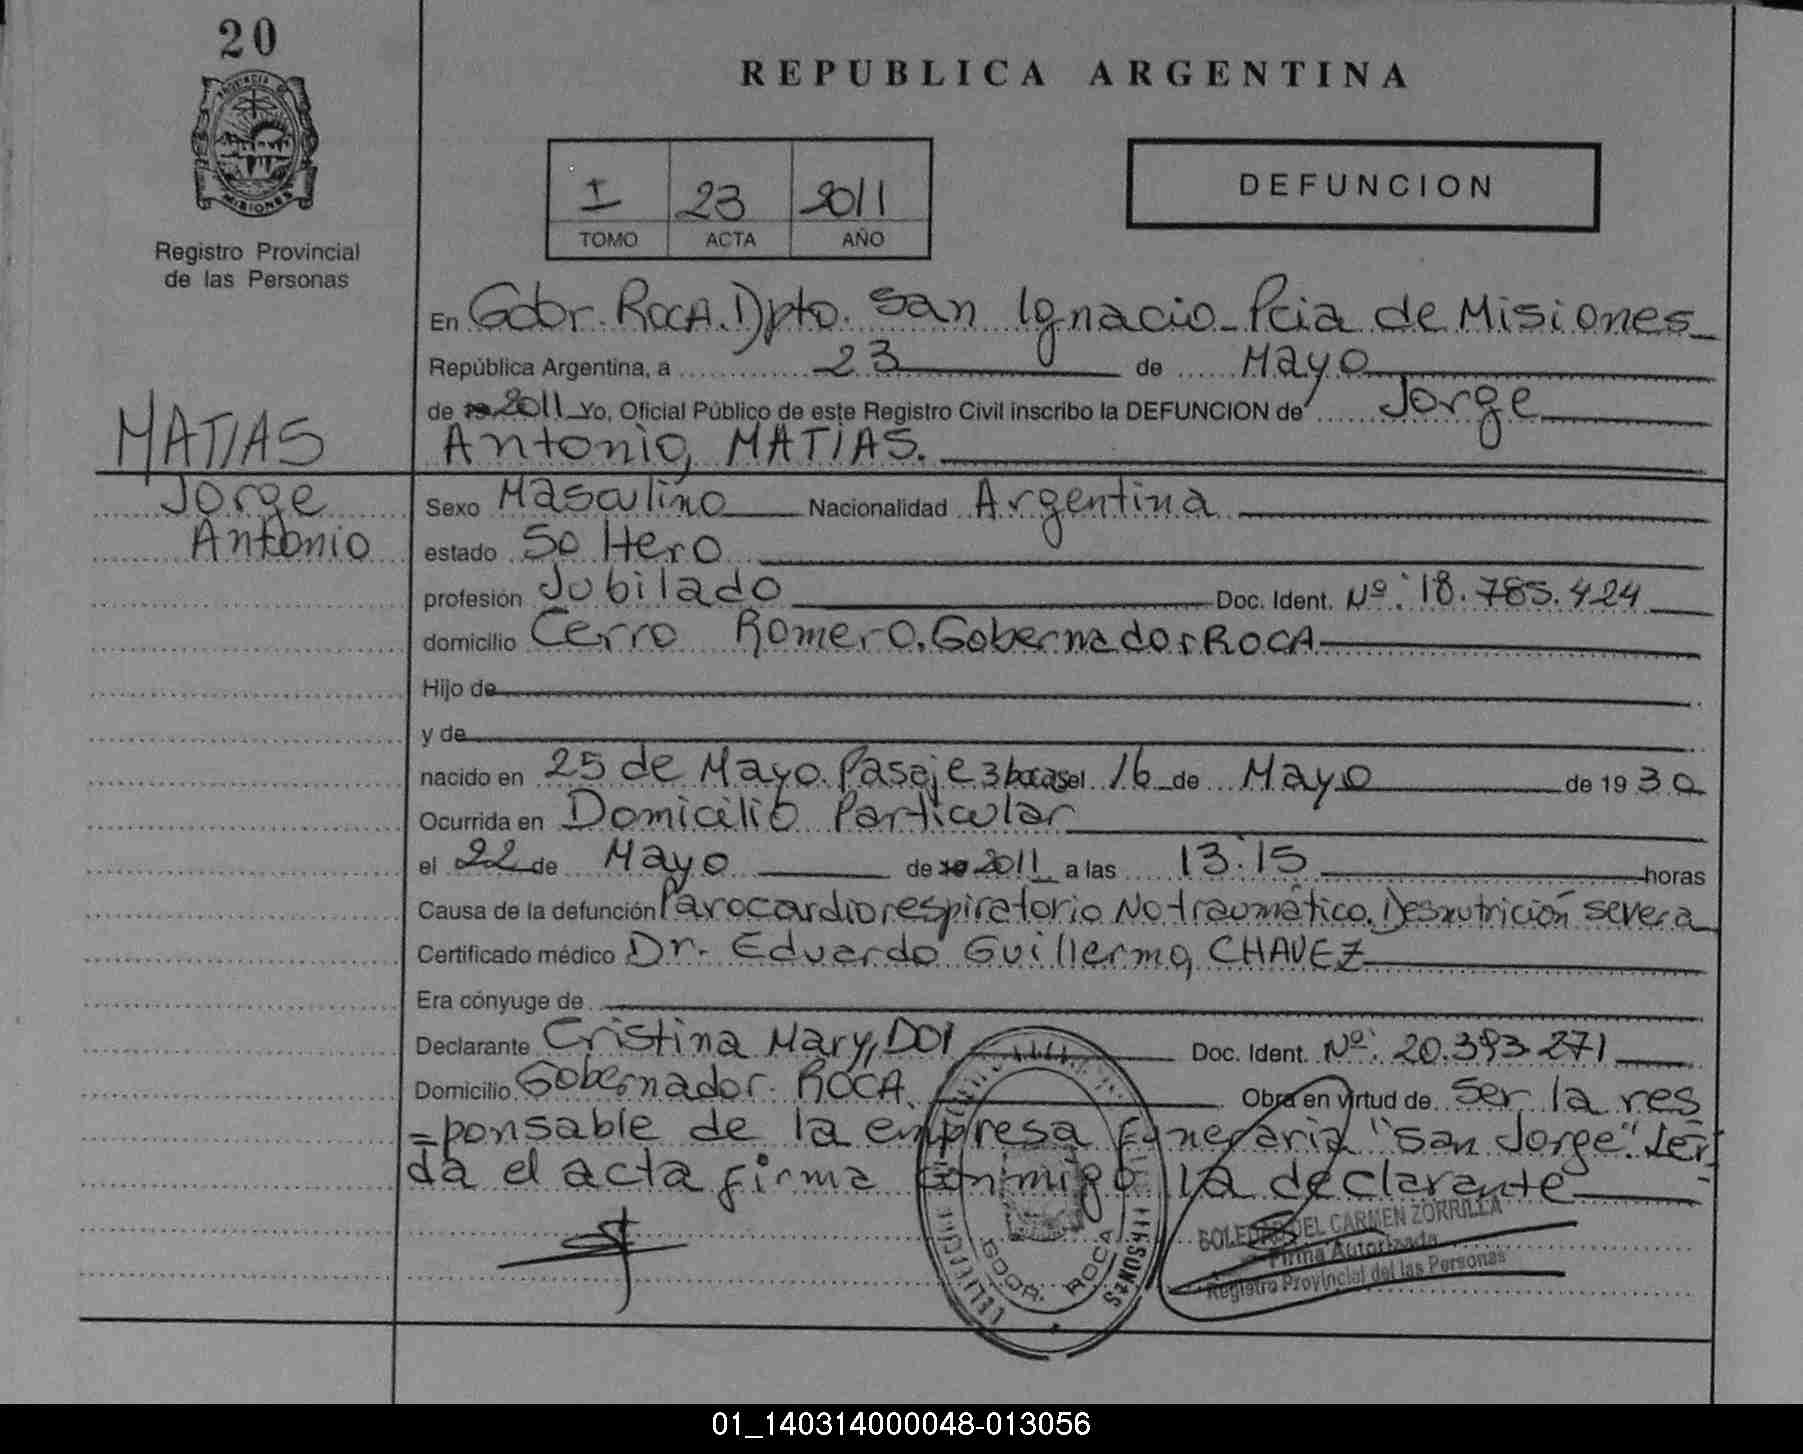 20
PROVINCIA DE
MISIONES
Registro Provincial
de las Personas
REPUBLICA ARGENTINA
I 23 2011
TOMO ACTA AÑO
DEFUNCION
En Gobr. ROCA. Dpto. San Ignacio - Pcia de Misiones
República Argentina, a 23 de Mayo
de 2011 Yo, Oficial Público de este Registro Civil inscribo la DEFUNCION de Jorge
Antonio, MATIAS.
MATIAS
Jorge
Antonio
Sexo Masculino Nacionalidad Argentina
estado Soltero
profesión Jubilado Doc. Ident. Nº: 18.785.424
domicilio Cerro Romero. Gobernador ROCA
Hijo de
y de
nacido en 25 de Mayo. Pasaje 3 bocas el 16 de Mayo de 1930
Ocurrida en Domicilio Particular
el 22 de Mayo de 2011 a las 13:15 horas
Causa de la defunción Parocardiorespiratorio No traumático. Desnutrición severa
Certificado médico Dr. Eduardo Guillermo, CHAVEZ
Era cónyuge de
Declarante Cristina Mary, DOI Doc. Ident. Nº: 20.393.271
Domicilio Gobernador ROCA. Obra en virtud de ser la res
=ponsable de la empresa funeraria "San Jorge". Leí
da el acta firma conmigo la declarante
GDOR. ROCA
MISIONES
SOLEDAD DEL CARMEN ZORRILLA
Firma Autorizada
Registro Provincial del las Personas
01_140314000048-013056